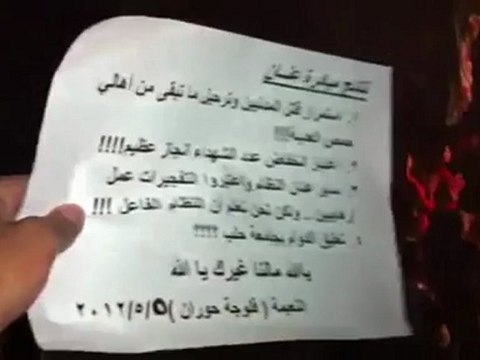 نتائج مبادرة عنان
١. استمرار قتل المدنيين وترحيل ما تبقى من أهالي
حمص العدية!!!
٢. اعتبر انخفاض عدد الشهداء انجاز عظيم!!!!
٣. سير عمل النظام واعتبروا التفجيرات عمل
ارهابيين .. ولكن نحن نعلم أن النظام الفاعل !!!
٤. تعليق الدوام بجامعة حلب ؟؟؟؟
يالله مالنا غيرك يا الله
النعيمة ( فلوجة حوران ) ٢٠١٢/٥/٥